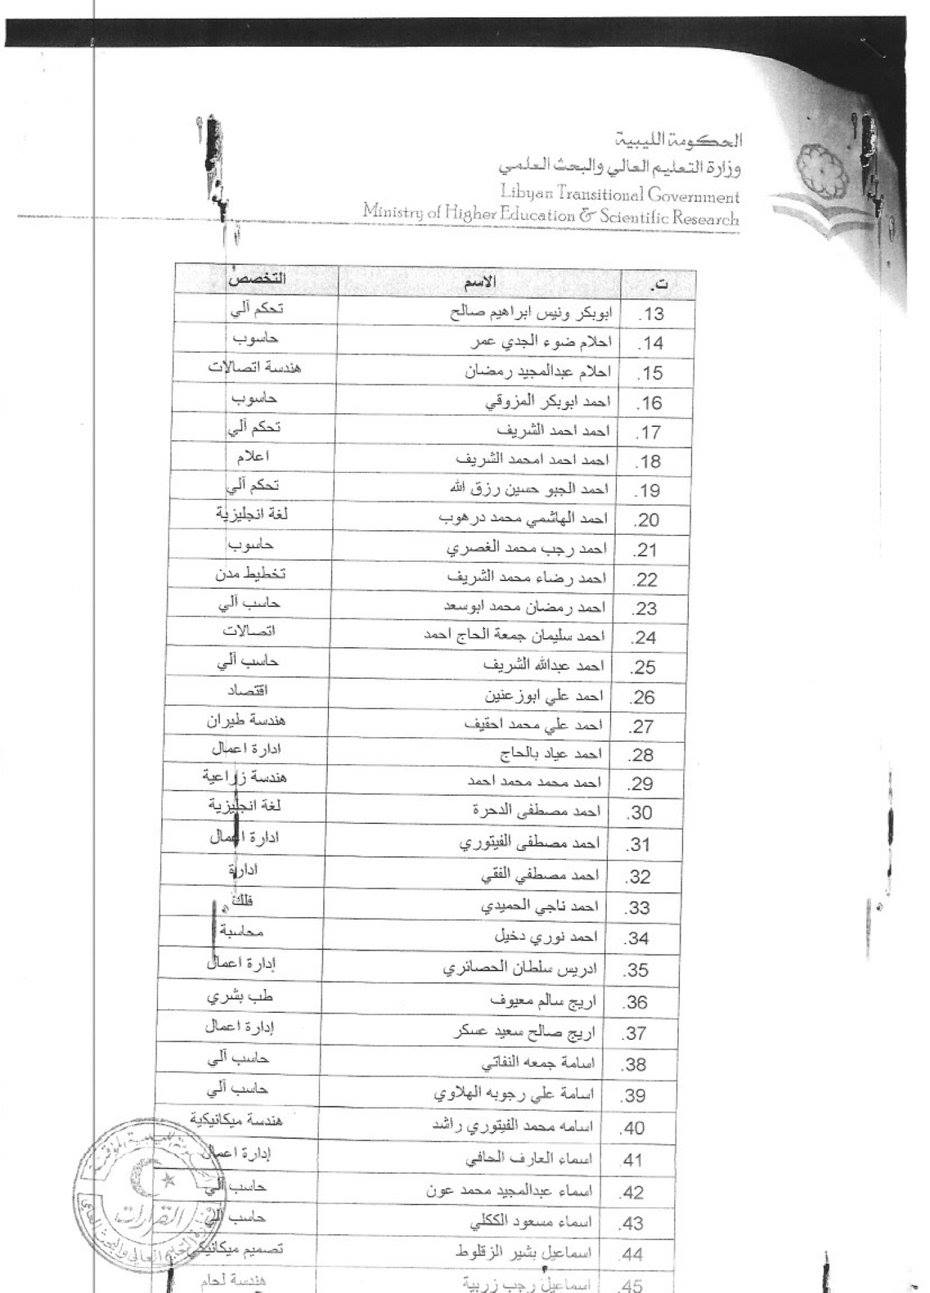 الحكومة الليبية
وزارة التعليم العالي والبحث العلمي
Libyan Transitional Government
Ministry of Higher Education & Scientific Research
ت. الاسم التخصص
13. ابوبكر ونيس ابراهيم صالح تحكم آلي
14. احلام ضوء الجدي عمر حاسوب
15. احلام عبدالمجيد رمضان هندسة اتصالات
16. احمد ابوبكر المزوقي حاسوب
17. احمد احمد الشريف تحكم آلي
18. احمد احمد امحمد الشريف اعلام
19. احمد الجبو حسين رزق الله تحكم آلي
20. احمد الهاشمي محمد درهوب لغة انجليزية
21. احمد رجب محمد الغصري حاسوب
22. احمد رضاء محمد الشريف تخطيط مدن
23. احمد رمضان محمد ابوسعد حاسب آلي
24. احمد سليمان جمعة الحاج احمد اتصالات
25. احمد عبدالله الشريف حاسب آلي
26. احمد علي ابوزعنين اقتصاد
27. احمد علي محمد احقيف هندسة طيران
28. احمد عياد بالحاج ادارة اعمال
29. احمد محمد محمد احمد هندسة زراعية
30. احمد مصطفى الدحرة لغة انجليزية
31. احمد مصطفى الفيتوري ادارة اعمال
32. احمد مصطفي الفقي ادارة
33. احمد ناجي الحميدي فلك
34. احمد نوري دخيل محاسبة
35. ادريس سلطان الحصائري إدارة اعمال
36. اريج سالم معيوف طب بشري
37. اريج صالح سعيد عسكر إدارة اعمال
38. اسامة جمعه النفاتي حاسب آلي
39. اسامة علي رجوبه الهلاوي حاسب آلي
40. اسامه محمد الفيتوري راشد هندسة ميكانيكية
41. اسماء العارف الحافي إدارة اعمال
42. اسماء عبدالمجيد محمد عون حاسب آلي
43. اسماء مسعود الككلي حاسب آلي
44. اسماعيل بشير الزقلوط تصميم ميكانيكي
45. اسماعيل رجب زربية هندسة لحام
القرارات